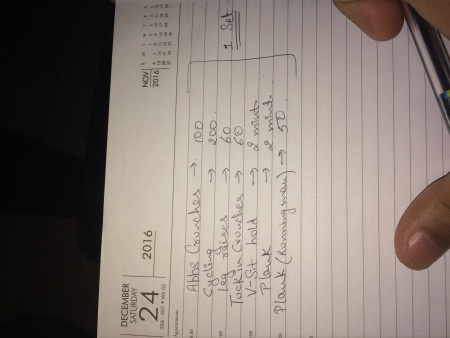 DECEMBER
SATURDAY
24
2016
NOV
2016
Abbs Crunches → 100
Cycling → 200
Leg raises → 60
Tuck in Crunches → 60
V-Sit hold → 2 mint.
Plank → 2 mint.
Plank (running man) → 50
1 Set